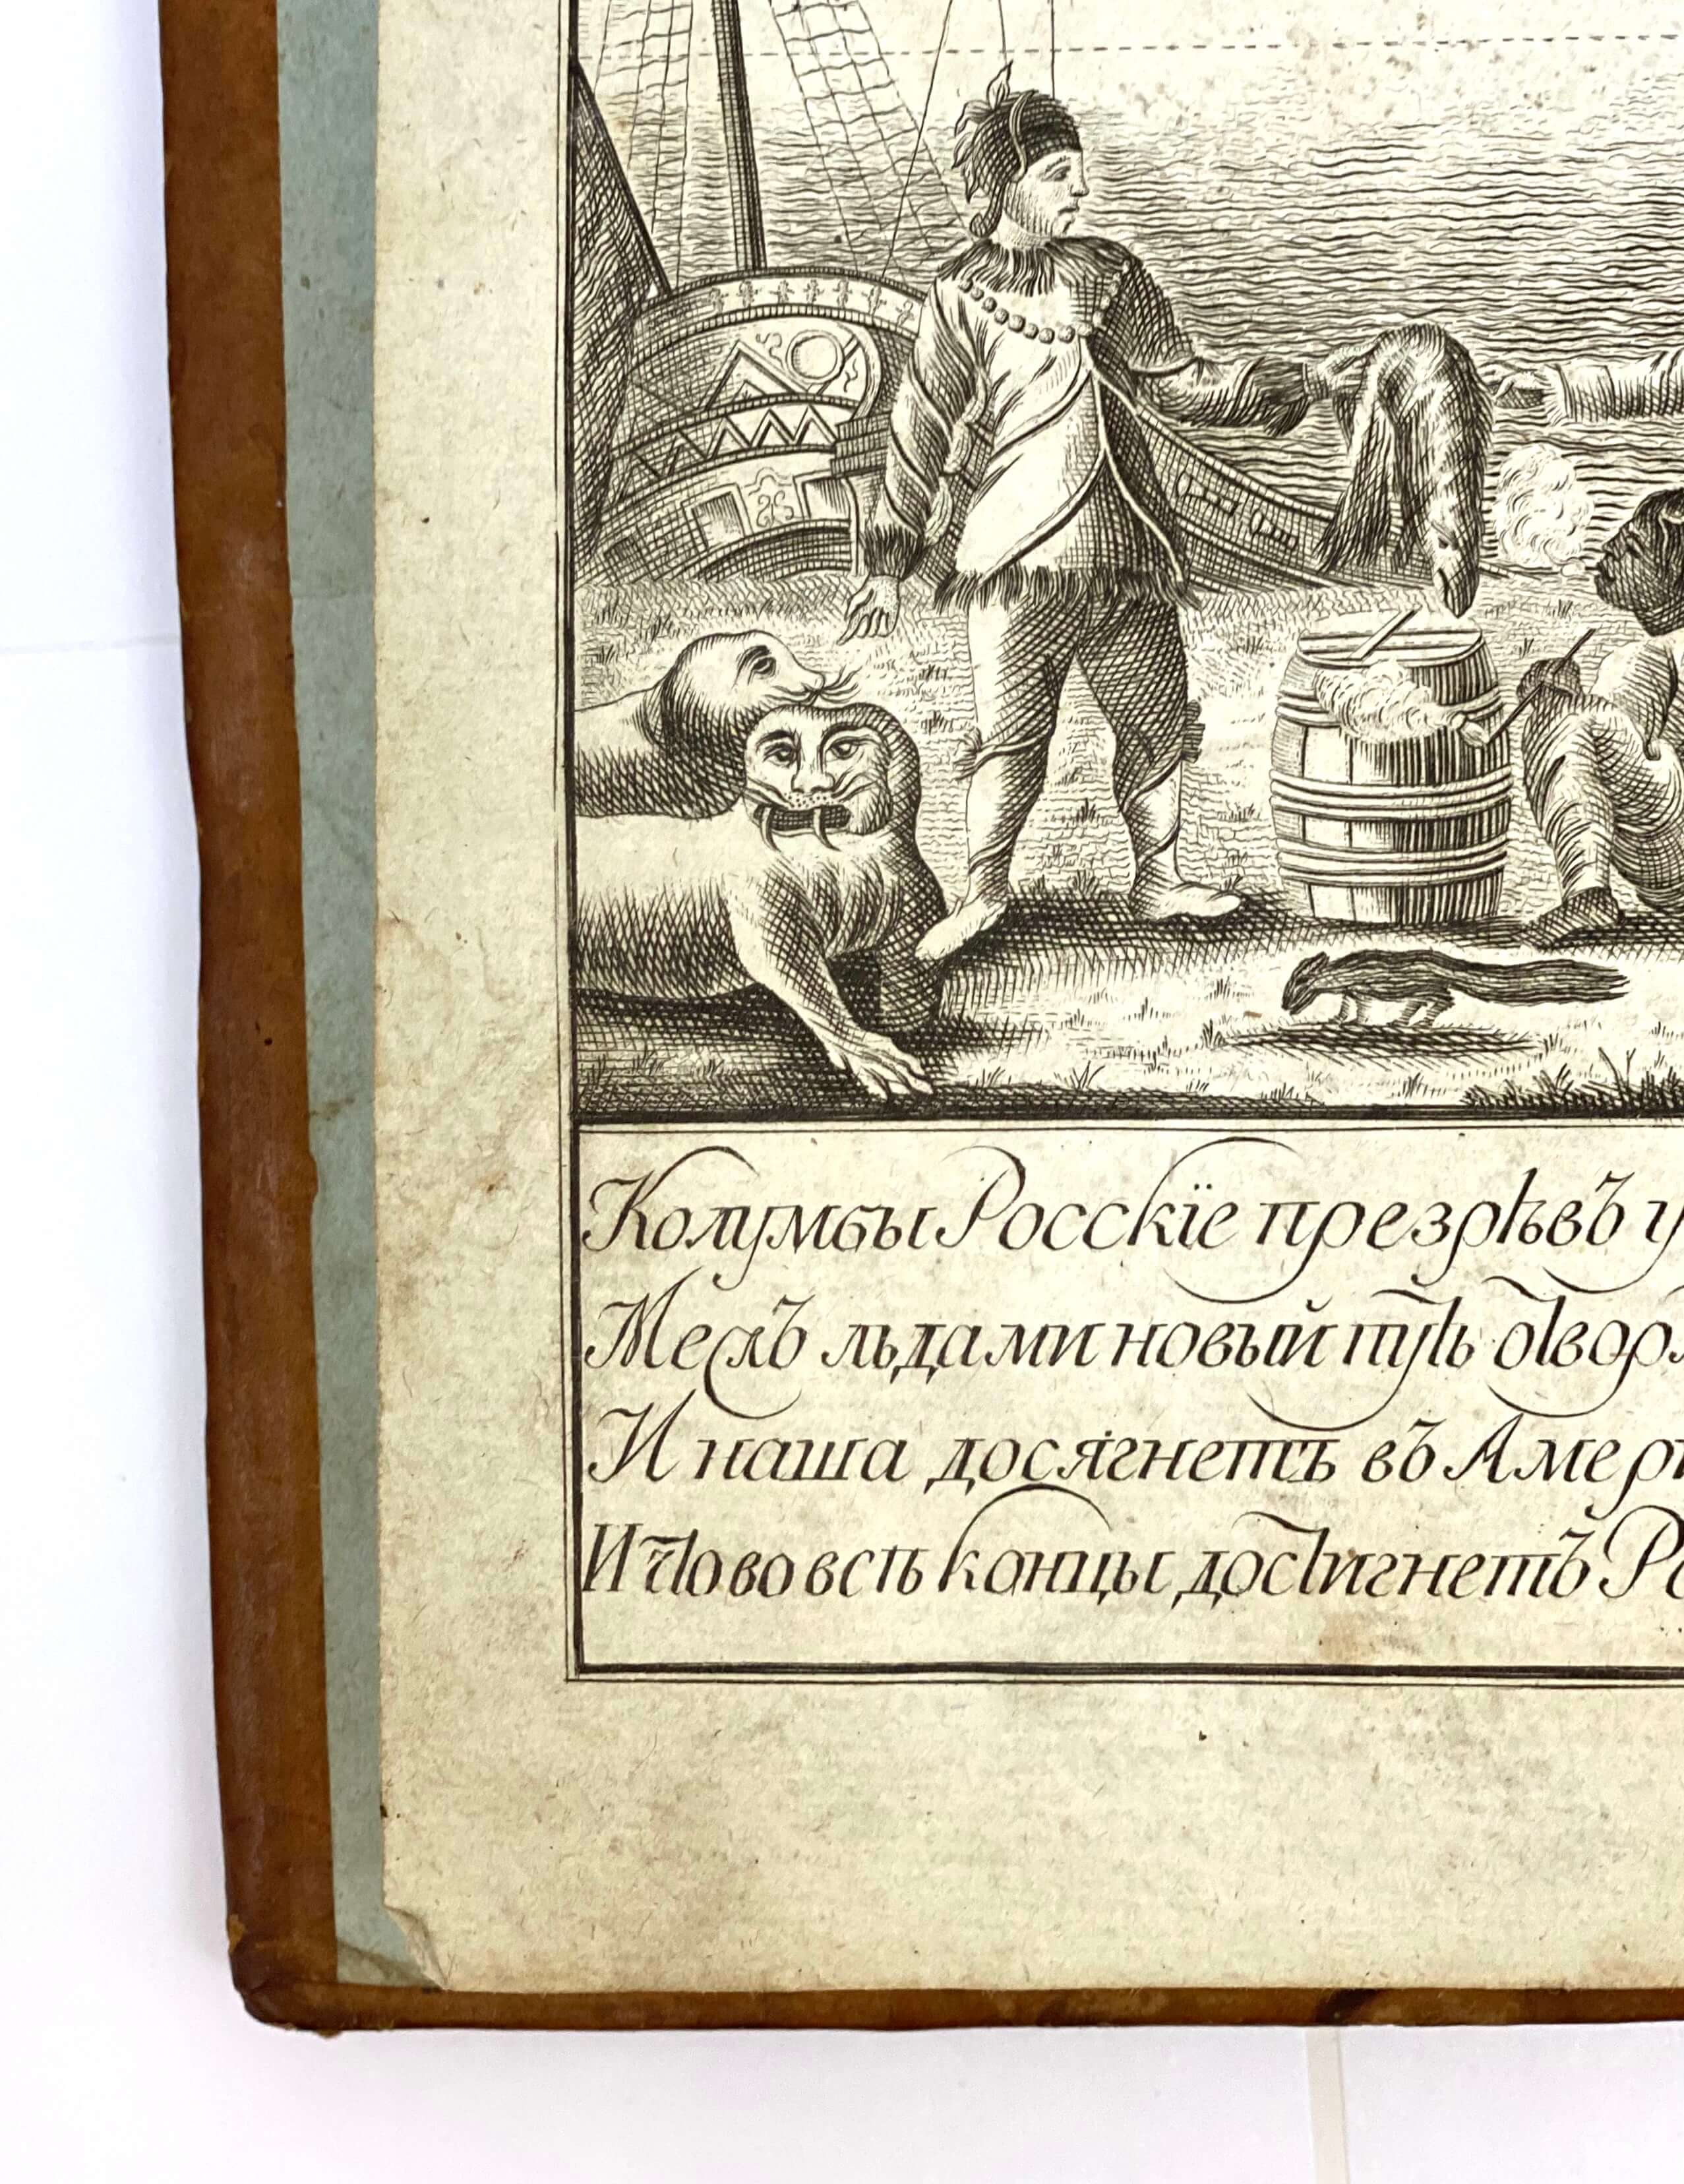 Колумбы Росскїе презрѣвъ у
Межъ льдами новый путь отвор
И наша досягнетъ въ Амери
И что во всѣ концы достигнетъ Ро